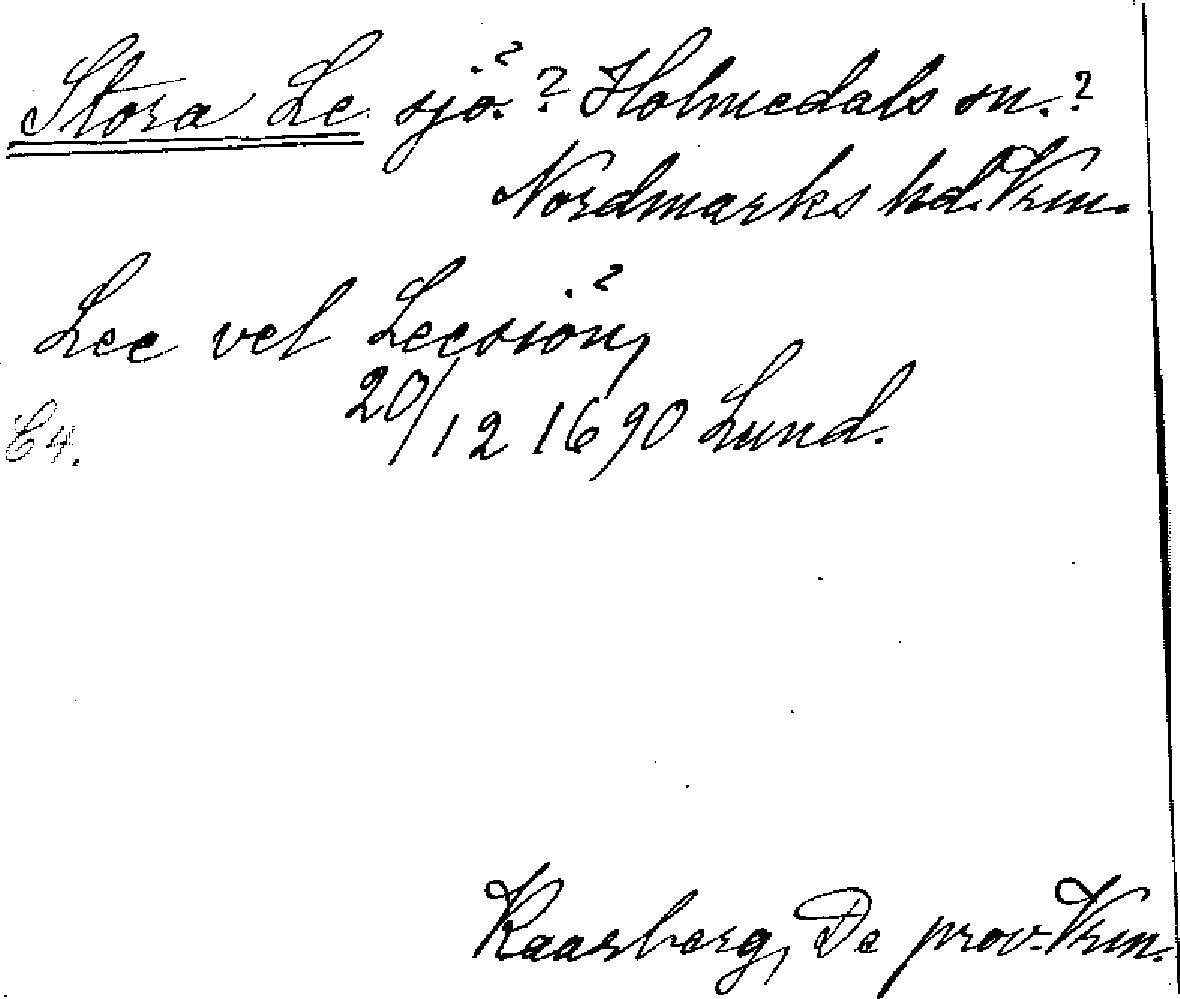 Stora Le sjö? ? Holmedals sn.?
Nordmarks hd. Vrm.
Lee vel Leesiön,
20/12 1690 Lund.
Kaasberg, De prov. Vrm.